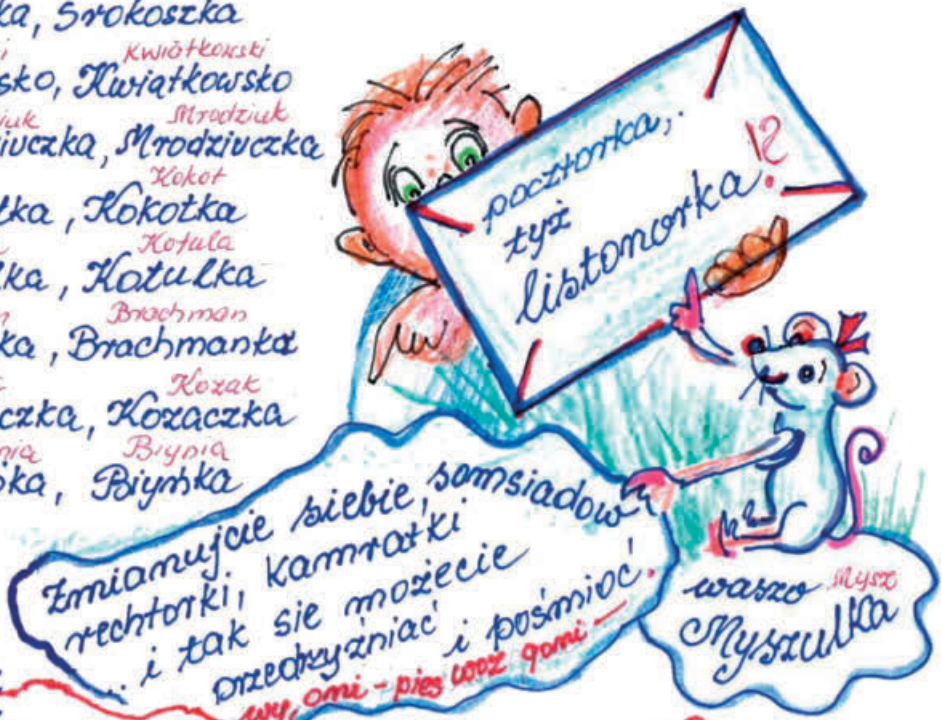 ka, Srokoszka
Kwiatkowski
sko, Kwiatkowsko
Mrodziuk
iuczka, Mrodziuczka
Kokot
łka, Kokotka
Kotula
lka, Kotulka
Brachman
ka, Brachmanka
Kozak
czka, Kozaczka
Biynia
ka, Biyńka
pocztorka,
tyż
listonorka!?
Zmianujcie siebie, somsiadow
rechtorki, kamratki
i tak sie możecie
przedrzyźniać i pośmioć.
wy, omi - pies woz goni -
waszo Mysz
Myszulka